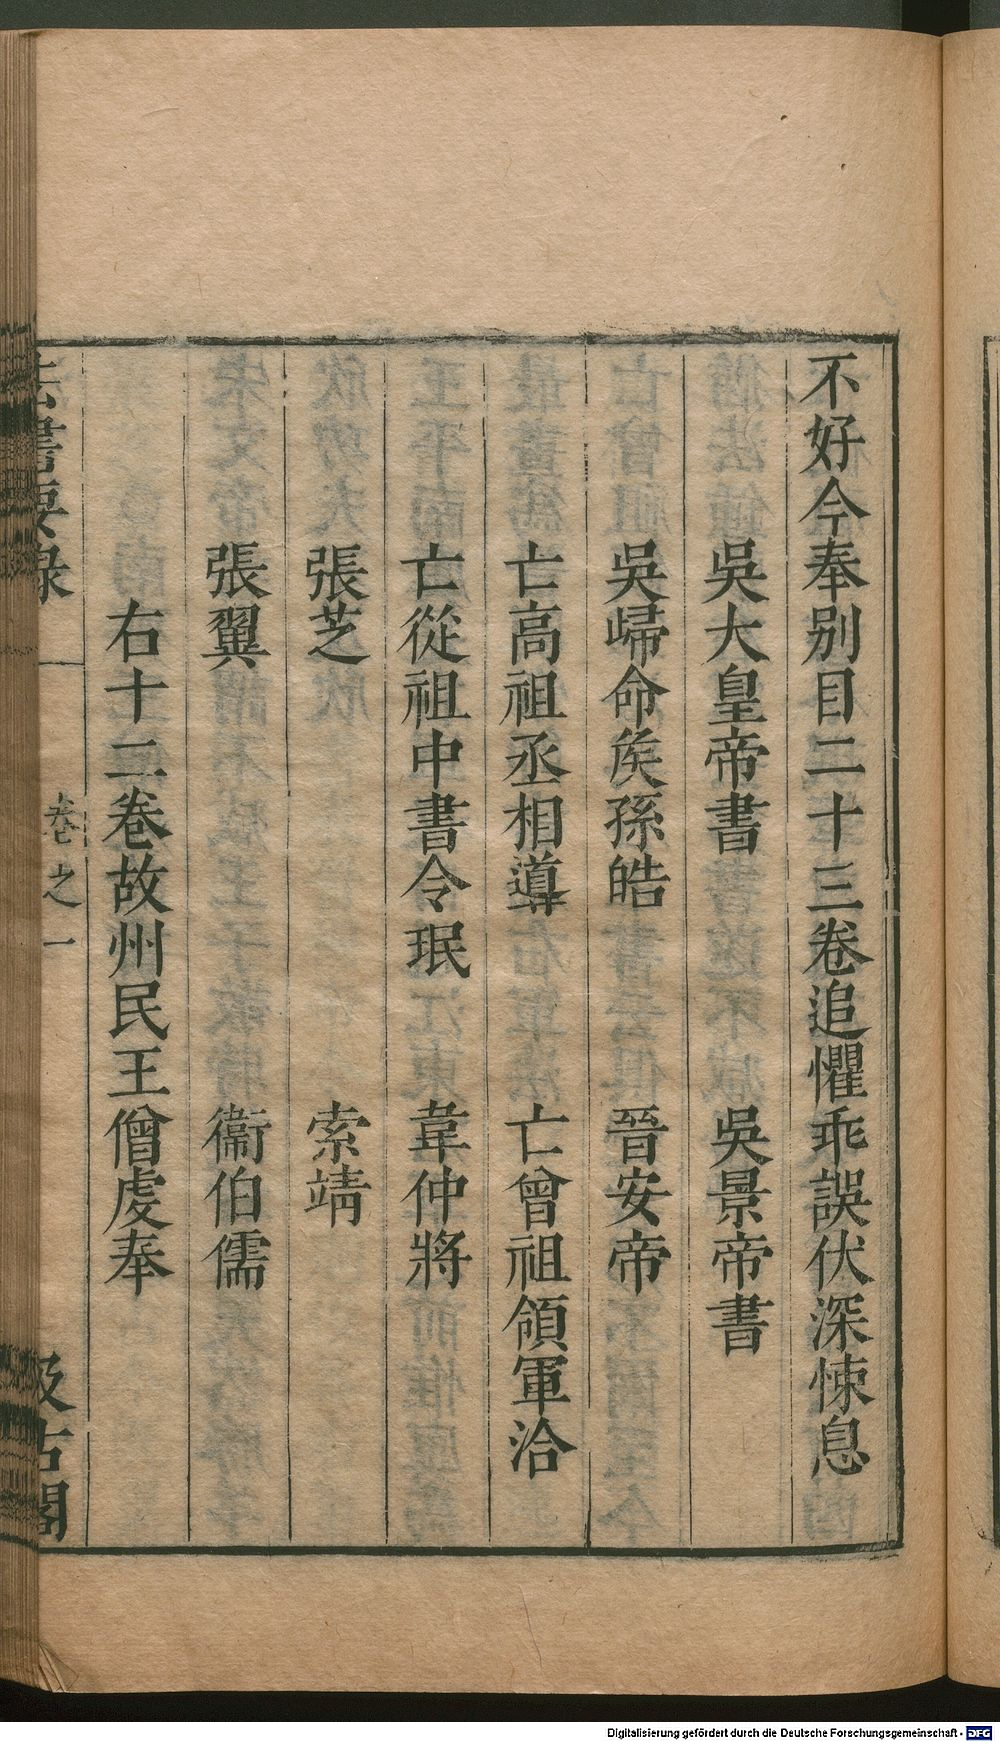 不好今奉别目二十三卷追懼乖誤伏深悚息
吳大皇帝書　吳景帝書
吳歸命矦孫皓　晉安帝
亡高祖丞相導　亡曾祖領軍洽
亡從祖中書令珉　韋仲將
張芝　索靖
張翼　衞伯儒
右十二卷故州民王僧虔奉
法書要錄　卷之一　汲古閣
Digitalisierung gefördert durch die Deutsche Forschungsgemeinschaft - DFG